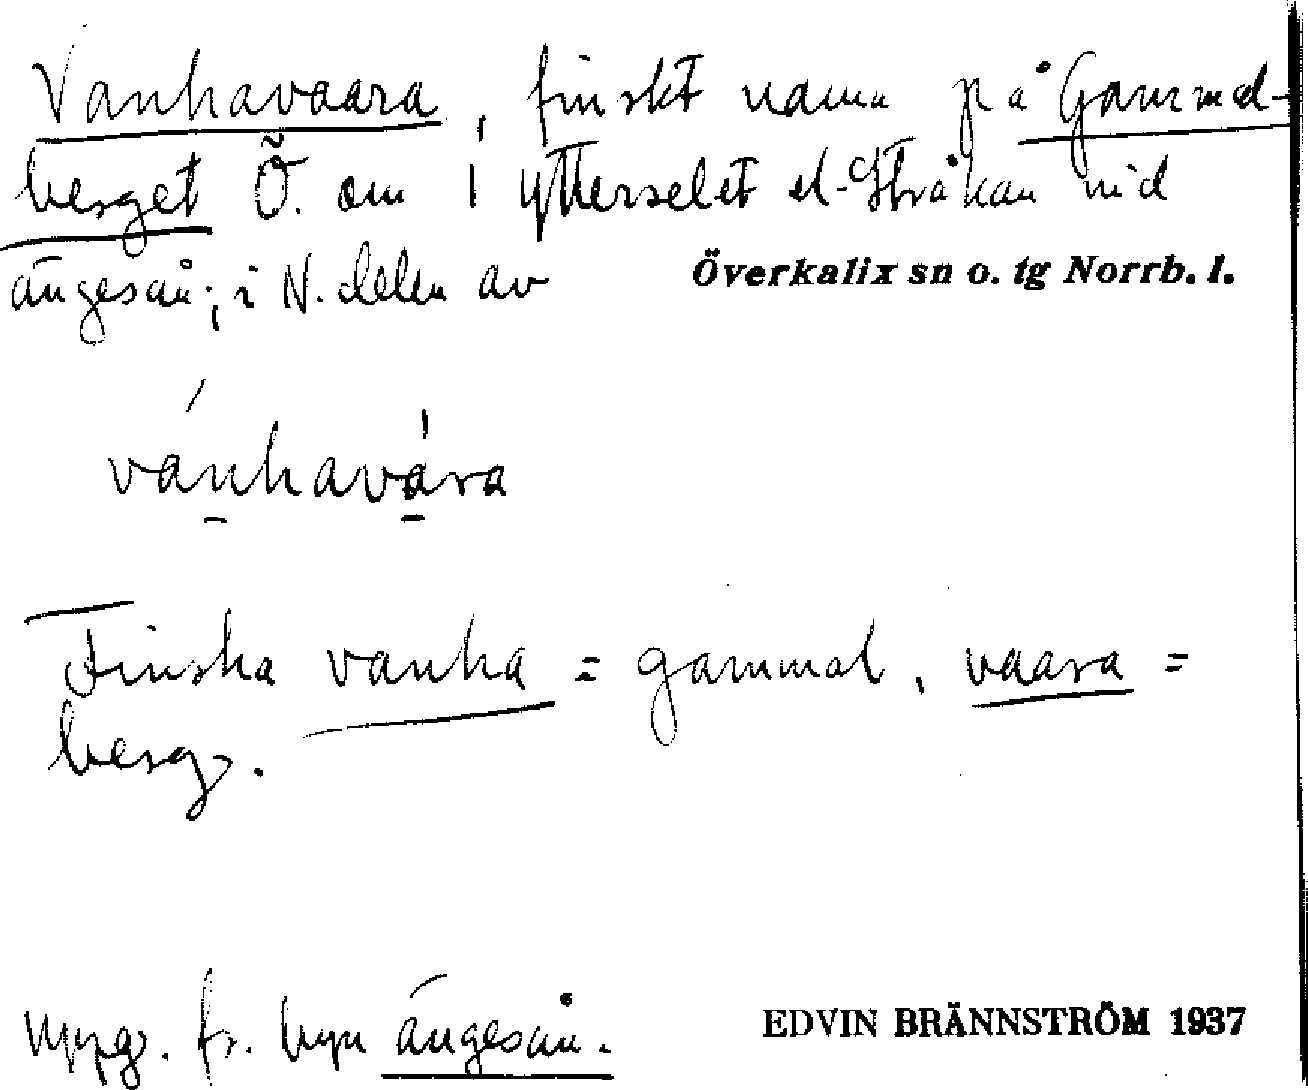 Vanhavaara, finskt namn på Gammel-
berget Ö. om Ytterselet el. Stråkan vid
ängesån; i N. delen av Överkalix sn o. tg Norrb. l.
vánhavára
Finska vanha = gammal, vaara =
berg.
Uppg. fr. byn ängesån.
EDVIN BRÄNNSTRÖM 1937